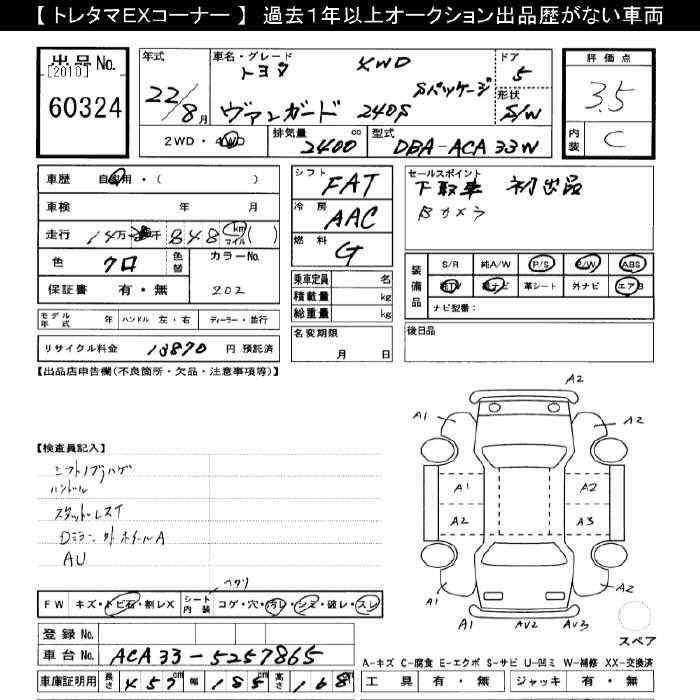 【 トレタマEXコーナー 】 過去1年以上オークション出品歴がない車両
出品No.
[2010]
60324
年式
22/8月
車名・グレード
トヨタ 4WD
Sパッケージ
ヴァンガード 240S
ドア
5
形状
S/W
評価点
3.5
内装
C
2WD・4WD
排気量
2400 cc
型式
DBA-ACA33W
車歴 自家用・( )
車検 年 月
走行 14万 千 848 km マイル ( )
色 クロ 色替
カラーNo.
202
保証書 有・無
シフト
FAT
冷房
AAC
燃料
G
セールスポイント
下取車 初出品
Bカメラ
装備品
S/R 純A/W P/S P/W ABS
純TV 純ナビ 革シート 外ナビ エアB
ナビ型番:
乗車定員 名
積載量 kg
総重量 kg
モデル年式 年 ハンドル 左・右 ディーラー・並行
リサイクル料金 13870 円 預託済
名変期限
月 日
後日品
【出品店申告欄(不良箇所・欠品・注意事項等)】
【検査員記入】
シフトノブハゲ
ハンドル
スタッドレスT
Dミラー、外 ホイールA
AU
A2
A1
A2
A1
A2
A2
A3
A1
A2
A1
AV2
AV3
スペア
ヘタリ
FW キズ・トビ石・割レX
シート内装 コゲ・穴・汚レ・シミ・破レ・スレ
登録No.
車台No. ACA33-5257865
車庫証明用 長さ 457cm 幅 185cm 高さ 168
A-キズ C-腐食 E-エクボ S-サビ U-凹ミ W-補修 XX-交換済
工具 有・無 ジャッキ 有・無